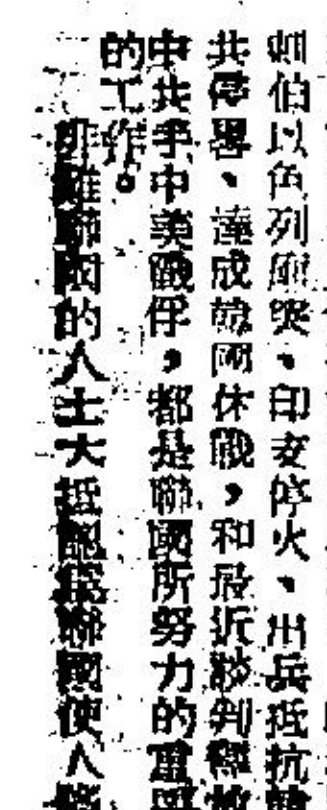 伯以色列衝突、印支停火、出兵抵抗
共侵略、達成韓國休戰,和最近談判釋放
中共手中美戰俘,都是聯國所努力的重要
的工作。
非難聯國的人士大抵認為聯國使人